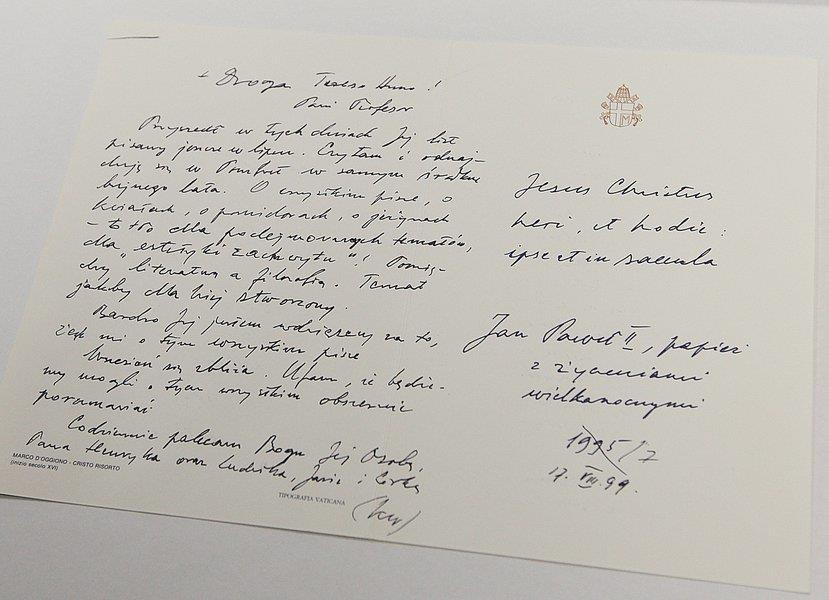 + Droga Tereso Anno!
Pani Profesor
Przyszedł w tych dniach Jej list
pisany jeszcze w lipcu. Czytam i odnaj-
duję się w w samym środku
bujnego lata. O wszystkim pisze, o
kwiatach, o pomidorach, o jeżynach
– to tło dla podejmowanych tematów,
dla „estetyki zachwytu"! Pomię-
dzy literaturą a filozofią. Temat
jakby dla Niej stworzony.
Bardzo Jej jestem wdzięczny za to,
że mi o tym wszystkim pisze
Wrzesień się zbliża. Ufam, iż będzie-
my mogli o tym wszystkim obszernie
porozmawiać
Codziennie polecam Bogu Jej Osobę,
Pana Henryka oraz Ludwika, Jasia i
MARCO D'OGGIONO - CRISTO RISORTO
(inizio secolo XVI)
TIPOGRAFIA VATICANA
Jesus Christus
heri, et hodie:
ipse et in saecula
Jan Paweł II, papież
z życzeniami
wielkanocnymi
1995/7
17. VIII. 99.